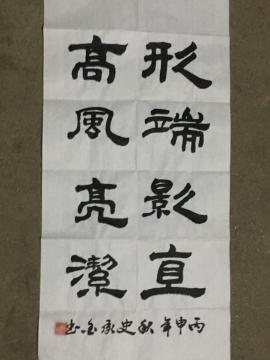 形端影直
高風亮潔
丙申年秋史承金书